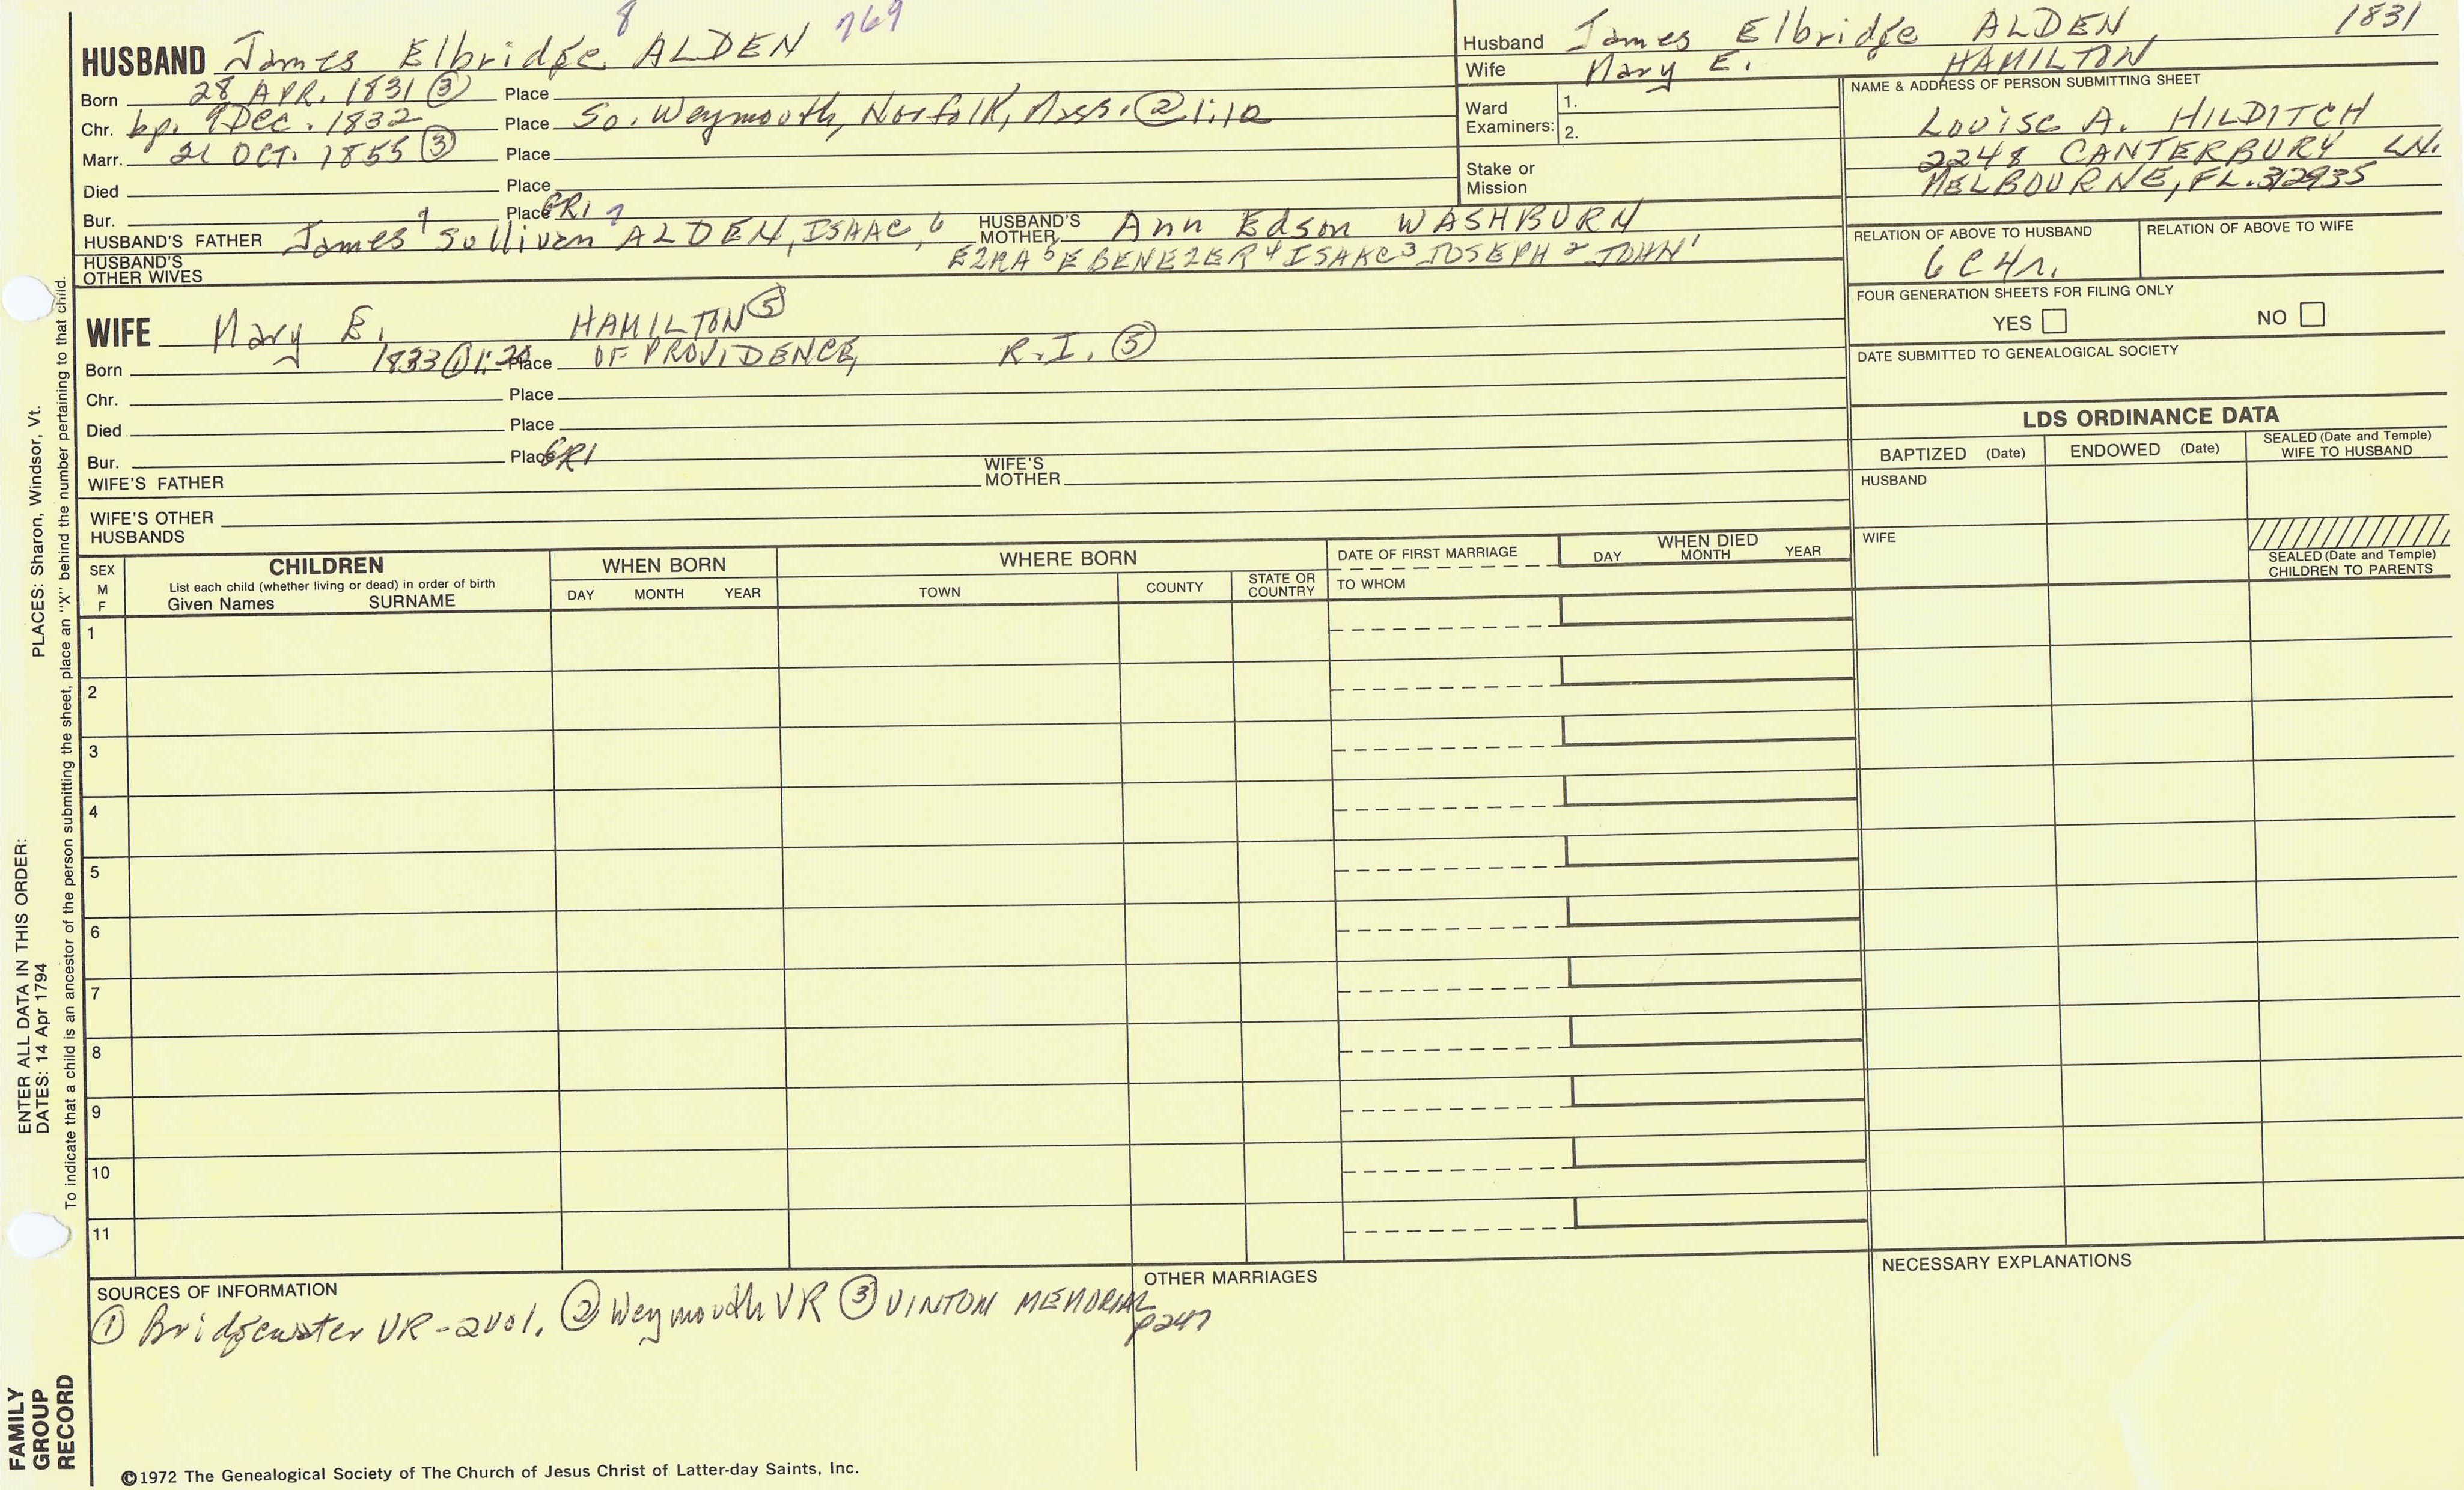 HUSBAND James Elbridge 8 ALDEN 769
Born 28 APR. 1831 ③ Place
Chr. bp. 9 Dec. 1832 Place So. Weymouth, Norfolk, Mass. ② 1:12
Marr. 21 OCT. 1855 ③ Place
Died Place
Bur. Place GRI
HUSBAND'S FATHER James Sullivan 7 ALDEN, ISAAC, 6 HUSBAND'S MOTHER Ann Edson WASHBURN
HUSBAND'S OTHER WIVES EZRA 5 EBENEZER 4 ISAAC 3 JOSEPH 2 JOHN 1
Husband James Elbridge ALDEN, 1831
Wife Mary E. HAMILTON
Ward Examiners: 1.
2.
Stake or Mission
NAME & ADDRESS OF PERSON SUBMITTING SHEET
Louise A. HILDITCH
2248 CANTERBURY LN.
MELBOURNE, FL. 32935
RELATION OF ABOVE TO HUSBAND RELATION OF ABOVE TO WIFE
6C4r.
FOUR GENERATION SHEETS FOR FILING ONLY
YES NO
DATE SUBMITTED TO GENEALOGICAL SOCIETY
WIFE Mary E. HAMILTON ⑤
Born 1833 ① Place OF PROVIDENCE, R.I. ⑤
Chr. Place
Died Place
Bur. Place GRI
WIFE'S FATHER WIFE'S MOTHER
WIFE'S OTHER HUSBANDS
LDS ORDINANCE DATA
BAPTIZED (Date) ENDOWED (Date) SEALED (Date and Temple) WIFE TO HUSBAND
HUSBAND
WIFE
SEALED (Date and Temple) CHILDREN TO PARENTS
SEX M F
CHILDREN
List each child (whether living or dead) in order of birth
Given Names SURNAME
WHEN BORN
DAY MONTH YEAR
WHERE BORN
TOWN COUNTY STATE OR COUNTRY
DATE OF FIRST MARRIAGE
TO WHOM
WHEN DIED
DAY MONTH YEAR
1
2
3
4
5
6
7
8
9
10
11
SOURCES OF INFORMATION
① Bridgewater VR-2vol. ② Weymouth VR ③ VINTON MEMORIAL p247
OTHER MARRIAGES
NECESSARY EXPLANATIONS
©1972 The Genealogical Society of The Church of Jesus Christ of Latter-day Saints, Inc.
FAMILY GROUP RECORD
ENTER ALL DATA IN THIS ORDER:
DATES: 14 Apr 1794 PLACES: Sharon, Windsor, Vt.
To indicate that a child is an ancestor of the person submitting the sheet, place an "X" behind the number pertaining to that child.